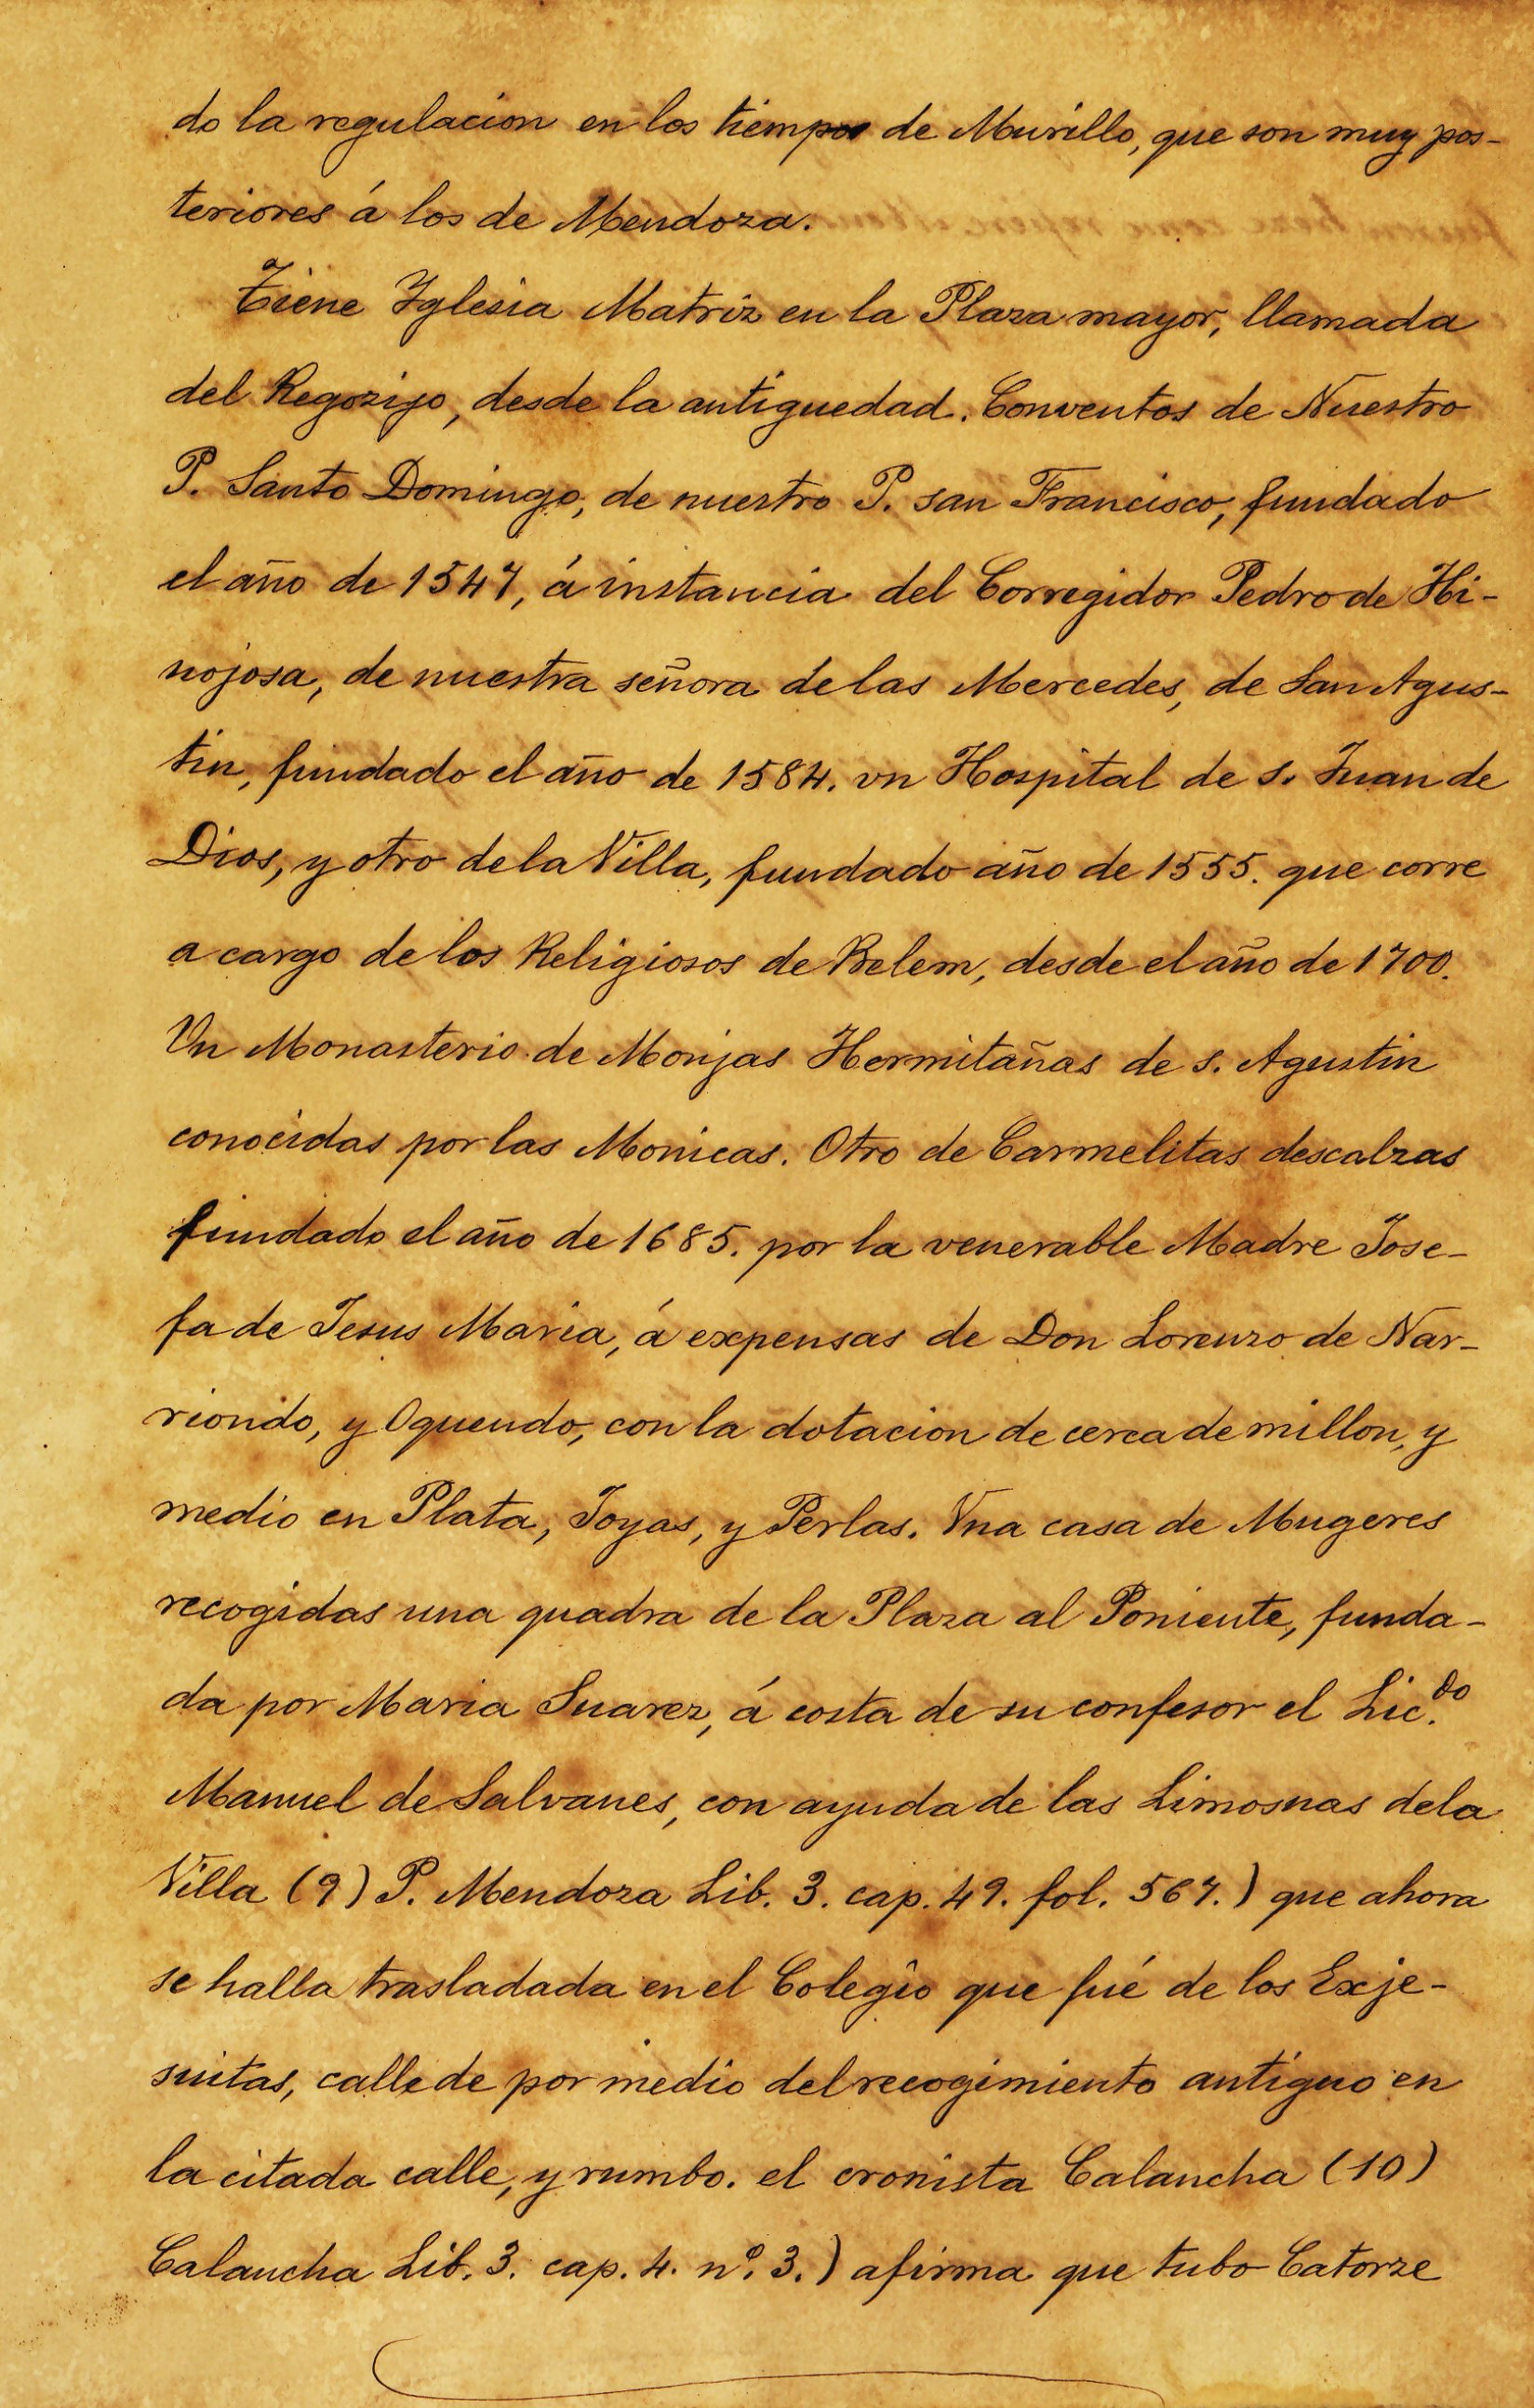 do la regulacion en los tiempos de Murillo, que son muy pos-
teriores á los de Mendoza.
Tiene Iglesia Matriz en la Plaza mayor, llamada
del Regozijo, desde la antiguedad. Conventos de Nuestro
P. Santo Domingo, de nuestro P. san Francisco, fundado
el año de 1547, á instancia del Corregidor Pedro de Hi-
nojosa, de nuestra señora de las Mercedes, de San Agus-
tin, fundado el año de 1584. vn Hospital de s. Juan de
Dios, y otro de la Villa, fundado año de 1555. que corre
a cargo de los Religiosos de Belem, desde el año de 1700.
Vn Monasterio de Monjas Hermitañas de s. Agustin
conocidas por las Monicas. Otro de Carmelitas descalzas
fundado el año de 1685. por la venerable Madre Jose-
fa de Jesus Maria, á expensas de Don Lorenzo de Nar-
riondo, y Oquendo, con la dotacion de cerca de millon, y
medio en Plata, Joyas, y Perlas. Vna casa de Mugeres
recogidas una quadra de la Plaza al Poniente, funda-
da por Maria Suarez, á costa de su confesor el Lic.do
Manuel de Salvanes, con ayuda de las Limosnas dela
Villa (9) P. Mendoza Lib. 3. cap. 49. fol. 567.) que ahora
se halla trasladada en el Colegio que fué de los Exje-
suitas, calle de por medio del recogimiento antiguo en
la citada calle, y rumbo. el cronista Calancha (10)
Calancha Lib. 3. cap. 4. nº. 3.) afirma que tubo Catorze